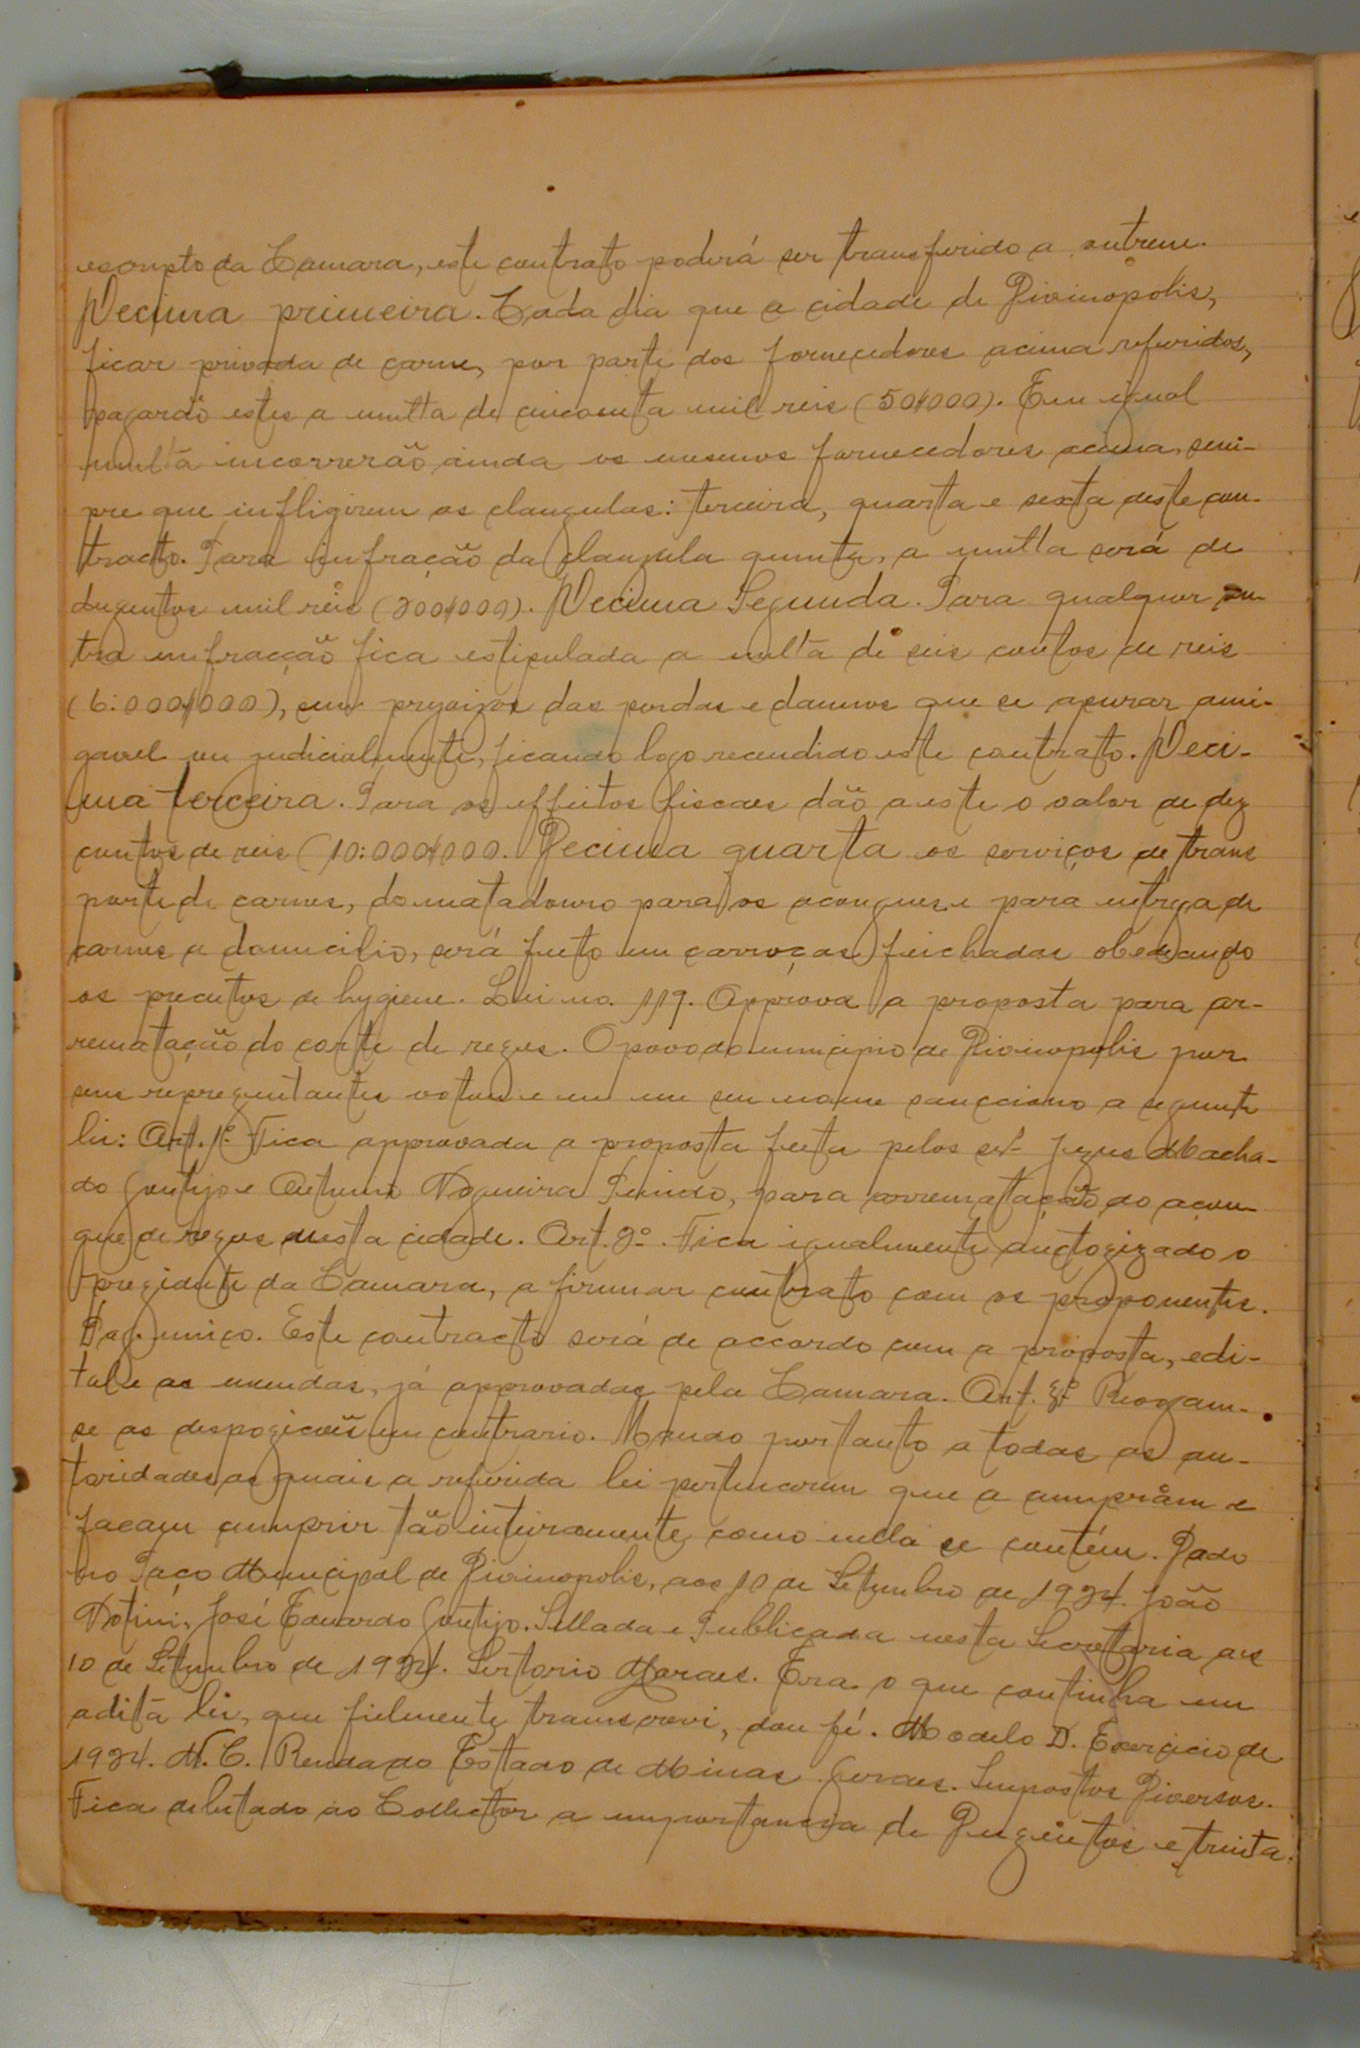 escripto da Camara, este contrato poderá ser transferido a outrem.
Decima primeira. Cada dia que a cidade de Divinopolis,
ficar privada de carne, por parte dos fornecedores acima referidos,
pagarão estes a multa de cincoenta mil reis (50$000). Em igual
multa incorrerão ainda os mesmos fornecedores acima, sem-
pre que infligirem as clausulas: terceira, quarta e sexta deste con-
tracto. Para infração da clausula quinta, a multa será de
duzentos mil reis (200$000). Decima Segunda. Para qualquer ou
tra infracção fica estipulada a multa de seis contos de reis
(6:000$000), sem prejuizos das perdas e damnos que se apurar ami-
gavel ou judicialmente, ficando logo recendido este contrato. Deci-
ma terceira. Para os effeitos fiscaes dão a este o valor de dez
contos de reis (10:000$000. Decima quarta os serviços de trans
porte de carnes, do matadouro para os açougues e para entrega de
carnes a domicilio, será feito em carroças feichadas obedecendo
os preceitos de hygiene. Lei no. 119. Approva a proposta para ar-
rematação do corte de rezes. O povo do municipio de Divinopolis por
seus reprezentantes votou e eu em seu nome sancciono a seguinte
lei: Art. 1º. Fica approvada a proposta feita pelos srs. Jezus Macha-
do Gontijo e Anthero Nogueira Penido, para arrematação do açou-
gue de rezes nesta cidade. Art. 2º. Fica igualmente auctorizado o
prezidente da Camara, a firmar contrato com os proponentes.
Pag. unico. Este contracto será de accordo com a proposta, edi-
tal e as emendas, já approvadas pela Camara. Art. 3º Revogam-
se as dispozicões em contrario. Mando portanto a todas as au-
toridades as quais a referida lei pertencerem que a cumpram e
facam cumprir tão inteiramente como nella se contém. Dado
no Paço Municipal de Divinopolis, aos 10 de Setembro de 1924. João
Notini, José Eduardo Gontijo. Sellada e Publicada nesta Secretaria aos
10 de Setembro de 1924. Sertorio Moraes. Era o que continha em
a dita lei, que fielmente transcrevi, dou fé. Modelo D. Exercicio de
1924. N. C. Renda do Estado de Minas Geraes. Impostos Diversos.
Fica debitado ao Collector a importancia de Duzentos e trinta